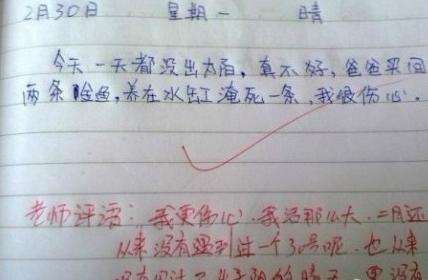 2月30日 星期一 晴
今天一天都没出太阳,真不好,爸爸买回
两条金鱼,养在水缸淹死一条,我很伤心。
老师评语:我更伤心。我活那么大,二月还
从来没有遇到过一个30号呢,也从来
没有见过不出太阳的晴天,更没有